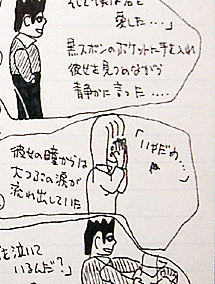 愛した‥‥」
黒ズボンのポケットに手を入れ
彼女を見つめながら
静かに言った‥‥
「いやだわ‥‥
彼女の瞳からは
大つぶの涙が
流れ出していた
を泣いて
いるんだ?」